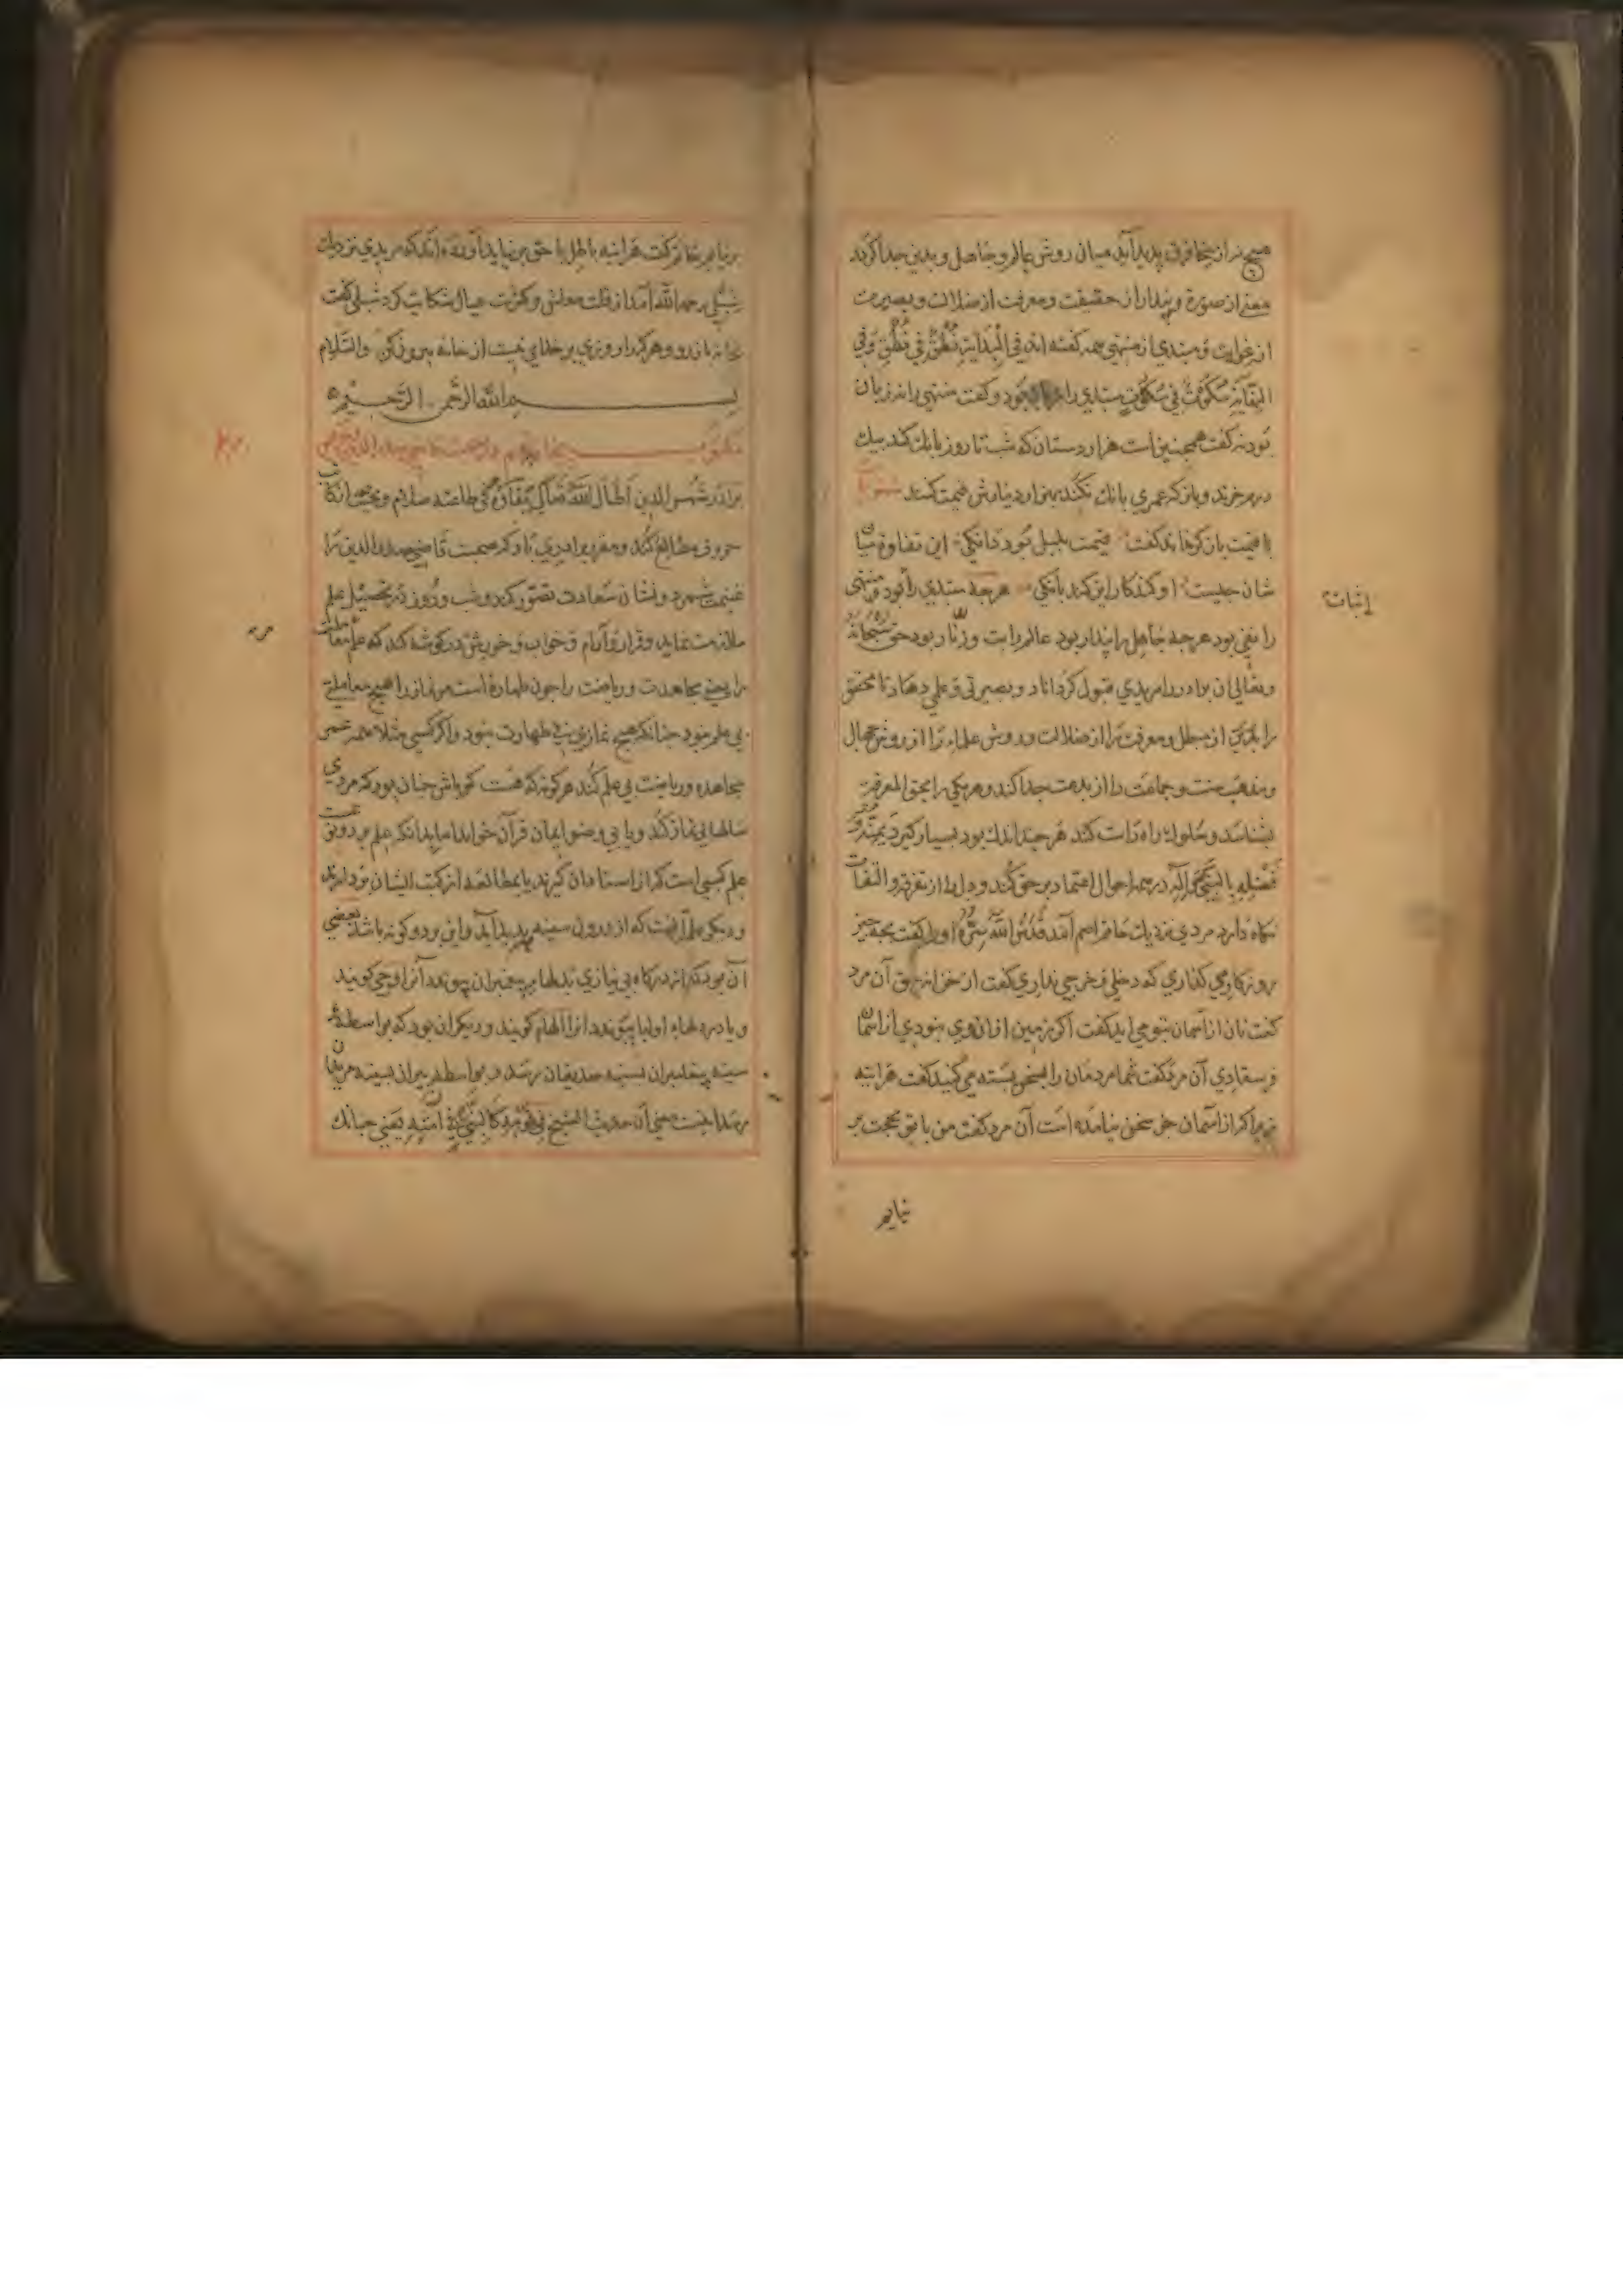 هیچ نه از ینجا فرق پدید آید میان روش عالم و جاهل و بدین جدا کردند
مغز از صورة و پندار از حقیقت و معرفت از ضلالت و بصیرت
از غوایت و مبتدی از منتهی همه گفته اند فی الْبِدَایَةِ نُطْقٌ فِی نُطْقٍ وَفِی
النهایَةِ سُکُوتٌ فِی سُکُوتٍ مبتدی را بود و گفت منتهی را نه زبان
بود نه گفت همچنین است هزاردستان که شب تا روز بانك کند بیك
درم خرند و باز که عمری بانك نکند بهزار دینارش قیمت کنند
با قیمت باز کرفاند گفت قیمت بلبل بود دانکی این تفاوة میان
شان چیست او کند کار این کند بانکی هر چه مبتدی را بود منتهی
إثبات
را نفی بود هر چه جاهل را پندار بود عالم را بت و زنّار بود حق سُبْحَانَهُ
وتعالی آن برادر را مریدی قبول کرداناد و بصیرتی و علمی دهاد تا محقق
را از مبطل و معرفت را از ضلالت و روش علماء را از روش جهال
و مذهب سنت و جماعت را از بدعت جدا کند و هر یکی را بحق المعرفة
بشناسد و سلوك راه راست کند هر چند اندك بود بسیار کیرد بِمَنِّهِ وَ
فَضْلِهِ بِالنَّبِیِّ وَآلِهِ در همه احوال اعتماد بر حق کند و دل را از تفرقه و التفات
نکاه دارد مردی نزدیك حاتم اصم آمد قَدَّسَ اللّٰهُ سِرَّهُ او را گفت بچه چیز
روزکار می کذاری که دخلی و خرجی نداری گفت از خزانه حق آن مرد
گفت نان از آسمان بتو می آید گفت اگر زمین از آن وی نبودی از آسمان
فرستادی آن مرد گفت شما مردمان را بسخن بسته می کنید گفت هر آینه
زیرا کر از آسمان جز سخن نیامده است آن مرد گفت من با تو بحجت بر
نیایم
بر نیایم حاتم گفت هر آینه باطل با حق بر نیاید آورده اند که مریدی نزدیك
شبلی رحمه الله آمد از قلت معاش و کثرت عیال شکایت کرد شبلی گفت
بخانه باز رو و هر کرا روزی بر خدای نیست از خانه بیرون کن والسّلام
بســـم الله الرَّحمن الرَّحیم
مکتوب
برادر شمس الدین أَطَالَ اللّٰهُ بَقَاءَهُ فی طاعته سلام و تحیت از کاتب
حروف مطالعه کند و مقرر برادری باد که صحبت قاضی صدرالدین را
غنیمت شمرد و نشان سعادت تصور کند و شب و روز در تحصیل علم
ملازمت نماید و قرار و آرام و خواب و خوریش در گوشه کند که علم
را یعنی مجاهدت و ریاضت را چون طهارة است مر نماز را هیچ معاملتی
بی علم نبود چنانکه هیچ نمازی بی طهارت نبود و اگر کسی مثلا همه عمر
مجاهده و ریاضت بی علم کند هر گونه که هست گو باش چنان بود که مردی
سالها بی نماز کند و یا بی وضو ایمان قرآن خواند اما بدانکه علم بر دو نوعست
علم کسبی است که از استادان گیرند یا بمطالعه از کتب ایشان بردارند
و دیکر علم آنست که از درون سینه پدید آید و این بر دو گونه باشد بعضی
آن بود که از درکاه بی نیازی بدلهاء پیغمبران پیوندد آنرا وحی گویند
و یا در دلهاء اولیا پیوندد آنرا الهام گویند و دیکر آن بود که بواسطهٔ
سینه پیغامبران بسینه صدیقان رسد و بواسطه پیران بسینه مریدان
رسد اینست معنی آن حدیث الشیخ فِی قَوْمِهِ کَالنَّبِیِّ فِی اُمَّتِهِ یعنی چنانك